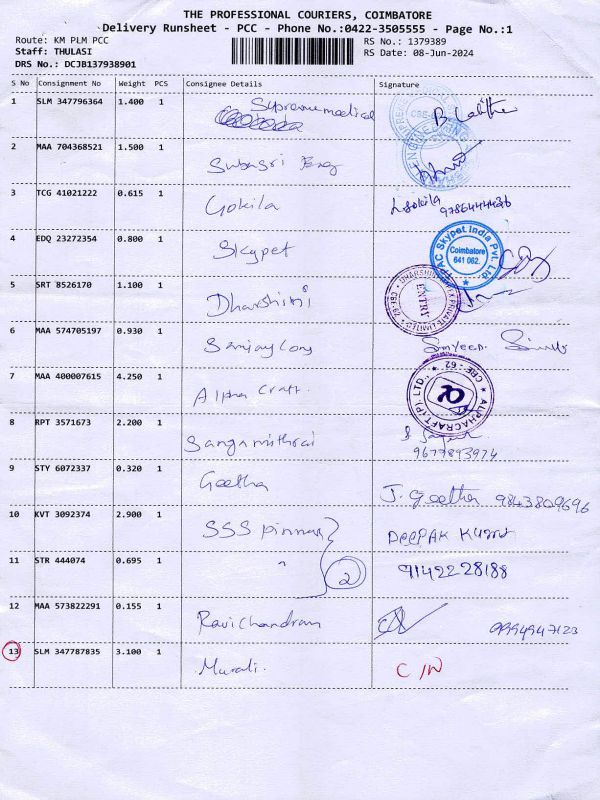 THE PROFESSIONAL COURIERS, COIMBATORE
Delivery Runsheet - PCC - Phone No.:0422-3505555 - Page No.:1
Route: KM PLM PCC
Staff: THULASI
DRS No.: DCJB137938901
RS No.: 1379389
RS Date: 08-Jun-2024
S No Consignment No Weight PCS Consignee Details Signature
1 SLM 347796364 1.400 1 Supreme medical B. Lalitha
2 MAA 704368521 1.500 1 Subasri Eng
3 TCG 41021222 0.615 1 Gokila L Gokila
4 EDQ 23272354 0.800 1 Skypet
SKYPAC Skypet India Pvt. Ltd.
Coimbatore
641 062.
5 SRT 8526170 1.100 1 Dharshini
ENTRY
6 MAA 574705197 0.930 1
7 MAA 400007615 4.250 1 Alpha Craft.
ALPHACRAFT (P) LTD., CBE-62
8 RPT 3571673 2.200 1
9677893974
9 STY 6072337 0.320 1 Geetha J. Geetha 9843809696
10 KVT 3092374 2.900 1 SSS DEEPAK KUMAR
11 STR 444074 0.695 1 " 2 9142228188
12 MAA 573822291 0.155 1 Ravichandran 9994947123
13 SLM 347787835 3.100 1 Murali.